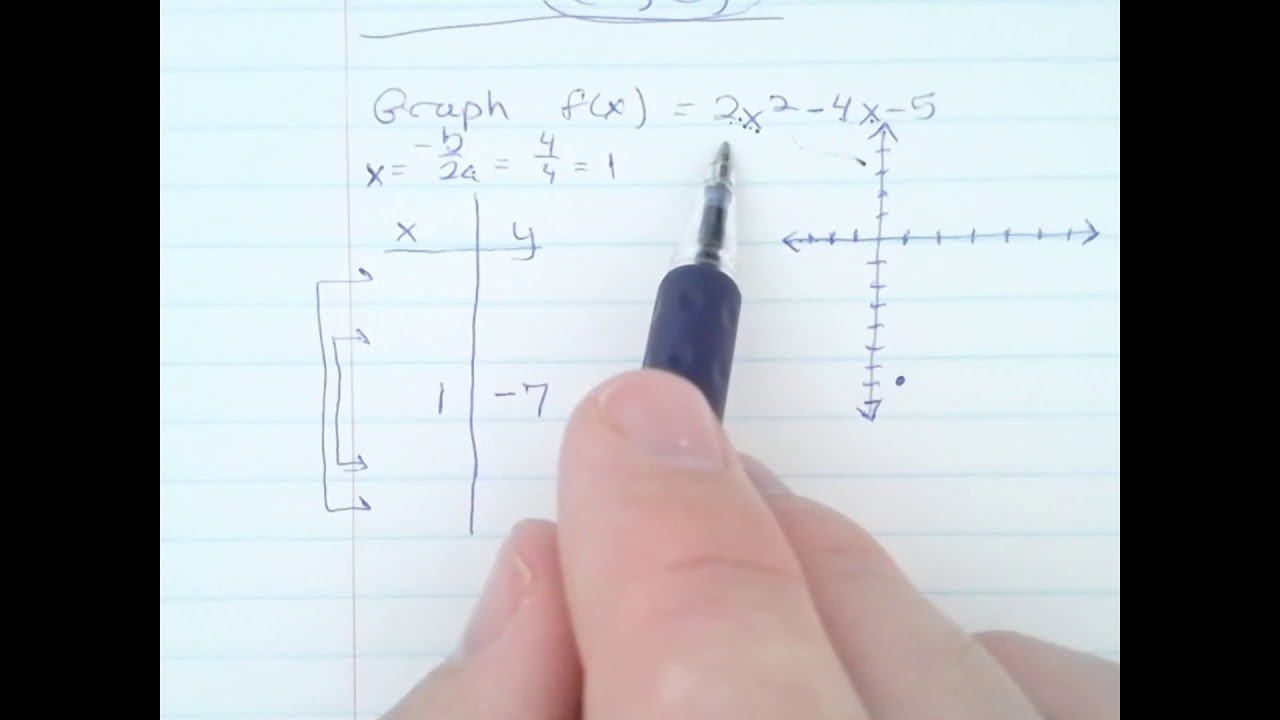 Graph f(x) = 2x² - 4x - 5
x = -b/2a = 4/4 = 1
x y
1 -7